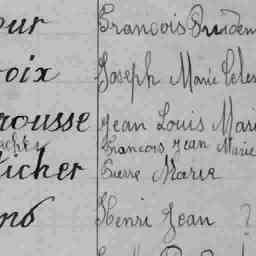 our François Prudem
oix Joseph Marie Celes
rousse Jean Louis Mari
François Jean Marie
ficher Pierre Marie
Henri Jean ?